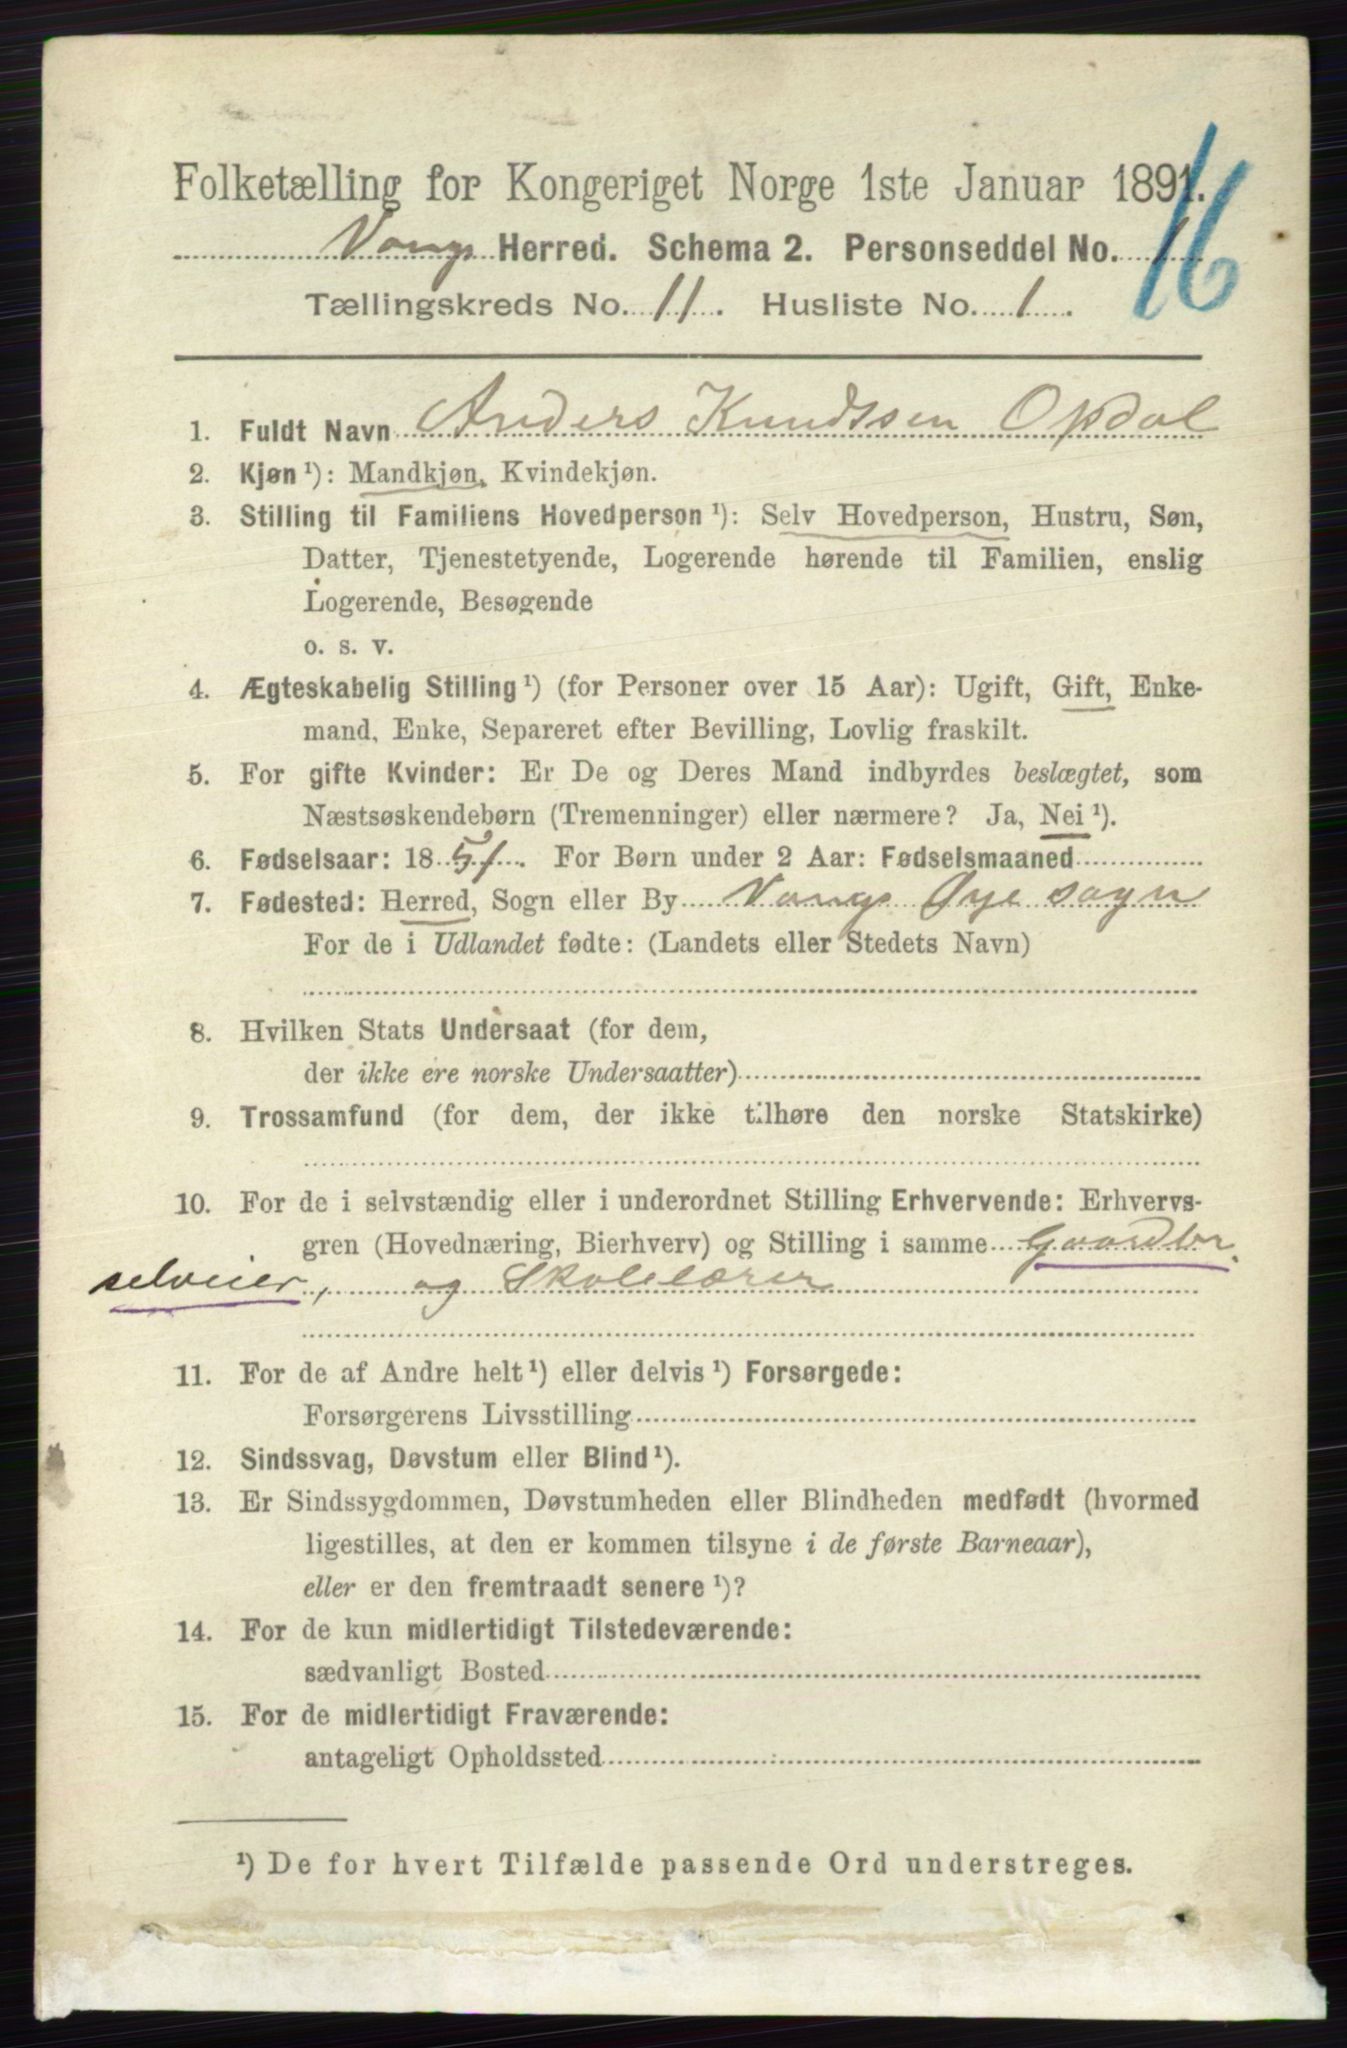 Folketælling for Kongeriget Norge 1ste Januar 1891.
16
Vangs Herred. Schema 2. Personseddel No. 1
Tællingskreds No. 11. Husliste No. 1.
1. Fuldt Navn Anders Knudssen Opdal
2. Kjøn ¹): Mandkjøn, Kvindekjøn.
3. Stilling til Familiens Hovedperson ¹): Selv Hovedperson, Hustru, Søn,
Datter, Tjenestetyende, Logerende hørende til Familien, enslig
Logerende, Besøgende
o. s. v.
4. Ægteskabelig Stilling ¹) (for Personer over 15 Aar): Ugift, Gift, Enke-
mand, Enke, Separeret efter Bevilling, Lovlig fraskilt.
5. For gifte Kvinder: Er De og Deres Mand indbyrdes beslægtet, som
Næstsøskendebørn (Tremenninger) eller nærmere? Ja, Nei ¹).
6. Fødselsaar: 1851. For Børn under 2 Aar: Fødselsmaaned
7. Fødested: Herred, Sogn eller By Vangs Øye sogn
For de i Udlandet fødte: (Landets eller Stedets Navn)
8. Hvilken Stats Undersaat (for dem,
der ikke ere norske Undersaatter)
9. Trossamfund (for dem, der ikke tilhøre den norske Statskirke)
10. For de i selvstændig eller i underordnet Stilling Erhvervende: Erhvervs-
gren (Hovednæring, Bierhverv) og Stilling i samme Gaardbr.
selveier, og Skolelærer
11. For de af Andre helt ¹) eller delvis ¹) Forsørgede:
Forsørgerens Livsstilling
12. Sindssvag, Døvstum eller Blind ¹).
13. Er Sindssygdommen, Døvstumheden eller Blindheden medfødt (hvormed
ligestilles, at den er kommen tilsyne i de første Barneaar),
eller er den fremtraadt senere ¹)?
14. For de kun midlertidigt Tilstedeværende:
sædvanligt Bosted
15. For de midlertidigt Fraværende:
antageligt Opholdssted
¹) De for hvert Tilfælde passende Ord understreges.